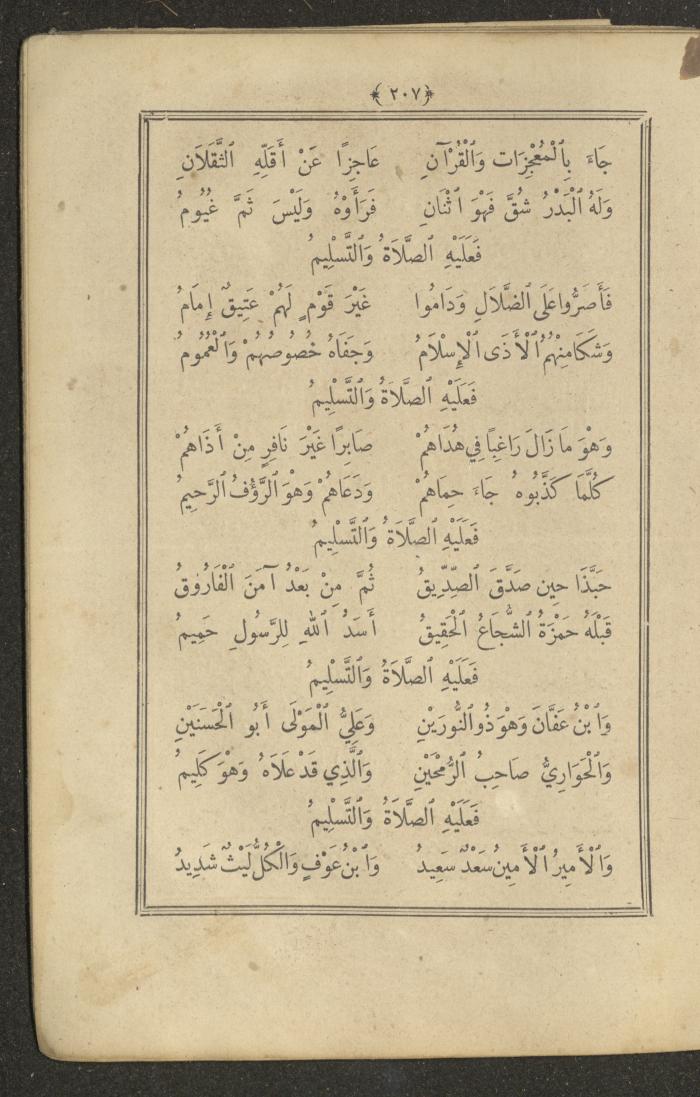 ﴿٢٠٧﴾
جَاءَ بِالْمُعْجِزَات وَالْقُرْآنِ عَاجِزًا عَنْ أَقَلِّهِ الثَّقَلَانِ
وَلَهُ الْبَدْرُ شُقَّ فَهْوَ اثْنَانِ فَرَأَوْهُ وَلَيْسَ ثَمَّ غُيُومُ
فَعَلَيْهِ الصَّلَاةُ وَالتَّسْلِيمُ
فَأَصَرُّوا عَلَى الضَّلَالِ وَدَامُوا غَيْرَ قَوْمٍ لَهُمْ عَتِيقٌ إِمَامُ
وَشَكَا مِنْهُمُ الْأَذَى الْإِسْلَامُ وَجَفَاهُ خُصُوصُهُمْ وَالْعُمُومُ
فَعَلَيْهِ الصَّلَاةُ وَالتَّسْلِيمُ
وَهْوَ مَا زَالَ رَاغِبًا فِي هُدَاهُمْ صَابِرًا غَيْرَ نَافِرٍ مِنْ أَذَاهُمْ
كُلَّمَا كَذَّبُوهُ جَاءَ حِمَاهُمْ وَدَعَاهُمْ وَهْوَ الرَّؤُفُ الرَّحِيمُ
فَعَلَيْهِ الصَّلَاةُ وَالتَّسْلِيمُ
حَبَّذَا حِين صَدَّقَ الصِّدِّيقُ ثُمَّ مِنْ بَعْدُ آمَنَ الْفَارُوقُ
قَبْلَهُ حَمْزَةُ الشُّجَاعُ الْحَقِيقُ أَسَدُ اللهِ لِلرَّسُولِ حَمِيمُ
فَعَلَيْهِ الصَّلَاةُ وَالتَّسْلِيمُ
وَابْنُ عَفَّانَ وَهْوَ ذُو النُّورَيْنِ وَعَلِيُّ الْمَوْلَى أَبُو الْحَسَنَيْنِ
وَالْحَوَارِيُّ صَاحِبُ الرُّمْحَيْنِ وَالَّذِي قَدْ عَلَاهُ وَهْوَ كَلِيمُ
فَعَلَيْهِ الصَّلَاةُ وَالتَّسْلِيمُ
وَالْأَمِيرُ الْأَمِينُ سَعْدٌ سَعِيدُ وَابْنُ عَوْفٍ وَالْكُلُّ لَيْثٌ شَدِيدُ